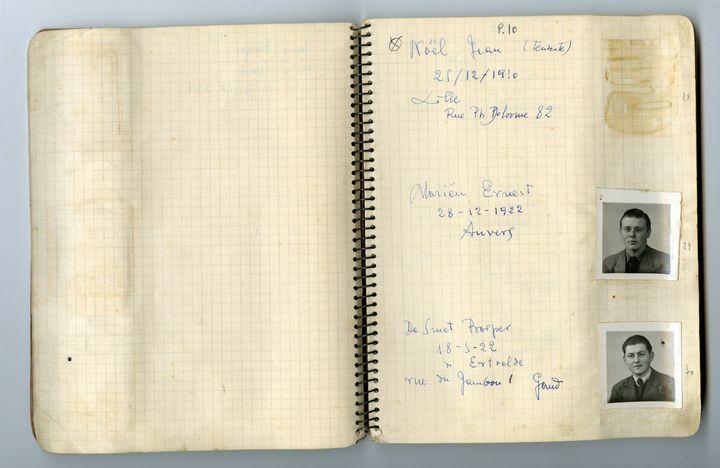 P.10
Noël Jean
25/12/1910
Lille
Rue Ph. Delorme 82
28
Mariën Ernest
28-12-1922
Anvers
29
De Smet Prosper
18-5-22
à Ertvelde
rue du Jambon 1 Gand
30